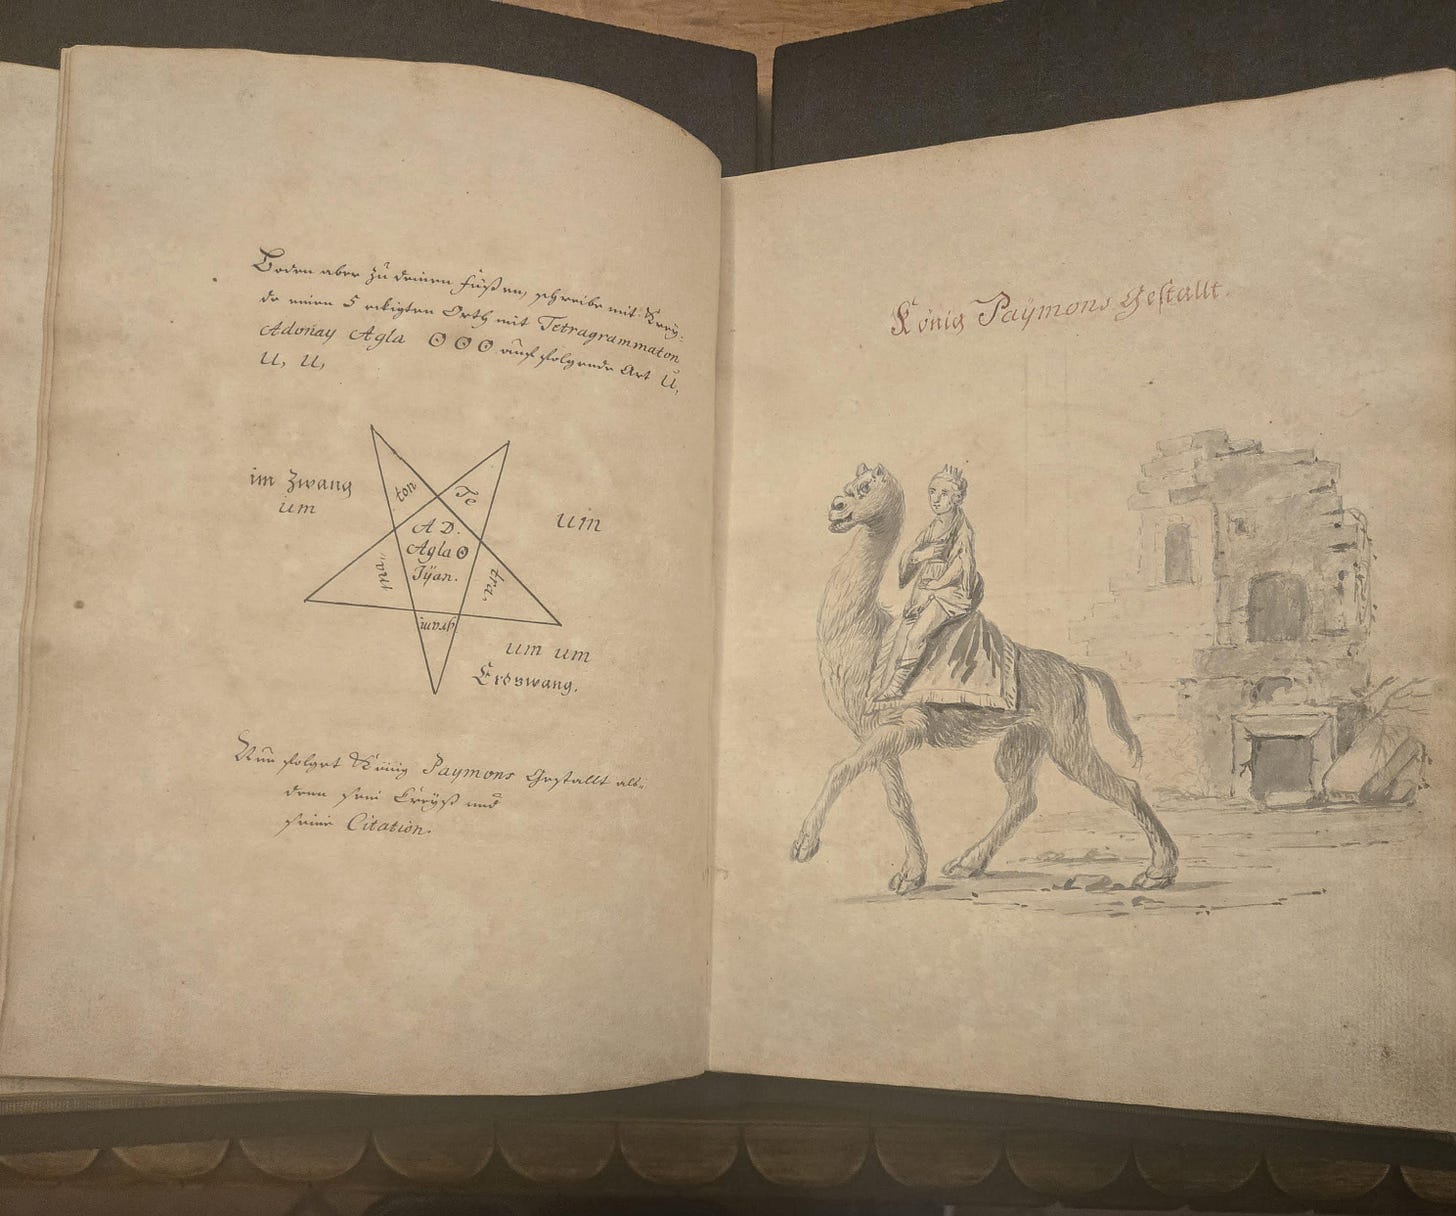 Boden aber zu deinen Füßen, schreibe mit Krey:
de einen 5 eckigten Orth mit Tetragrammaton
Adonay Agla ʘ ʘ ʘ auf folgende Art U,
U, U,
im Zwang
um
um
ton
Te
A D.
Agla ʘ
Tÿan.
ma,,
tra,
gram
um um
Erdzwang.
Nun folget König Paymons Gestallt als-
denn sein Creyß und
seine Citation.
König Paÿmons Gestallt.